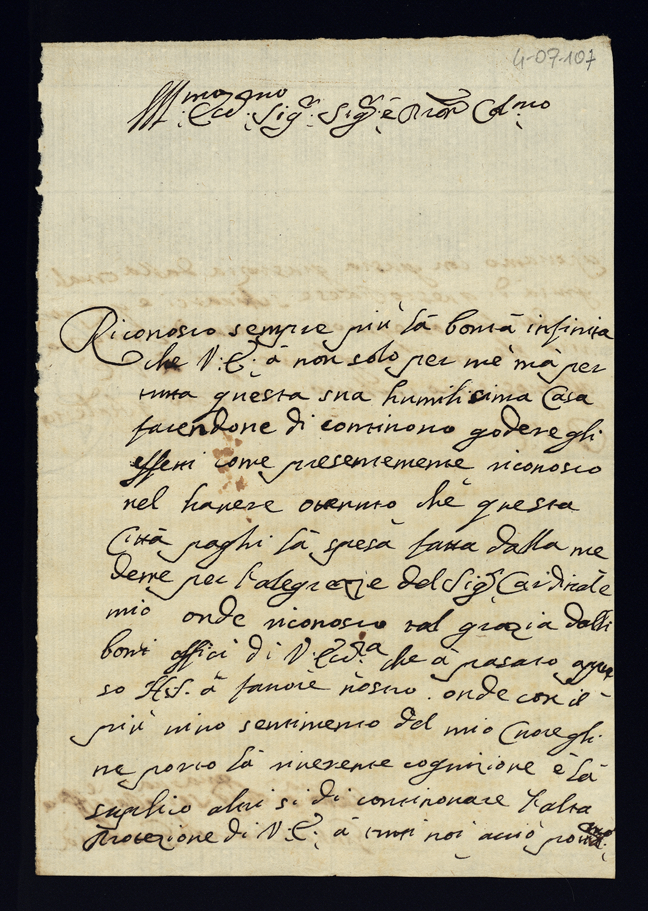 4-07-107
Ill.mo Ecc.mo Sig.r Sig.r e Pron Col.mo
Riconosco sempre più là bontà infinita
che V: E: à non solo per mè mà per
tutta questa sua humilisima Casa
facendone di continouo godere gli
effetti come presentemente riconosco
nel havere otenuto chè questa
Città paghi là spesà fatta dalla me
deme per l'alegrezie del Sig.r Cardinale
mio onde riconosco tal grazia dalli
boni offici di V: Ecc.a che à pasato apres
so N.S. à favore nostro. onde con il
più vivo sentimento del mio Cuore gli
ne porto là riverente cognizione è là
suplico altresi di continouare l'alta
Protezione di V: E: à tutti noi acciò